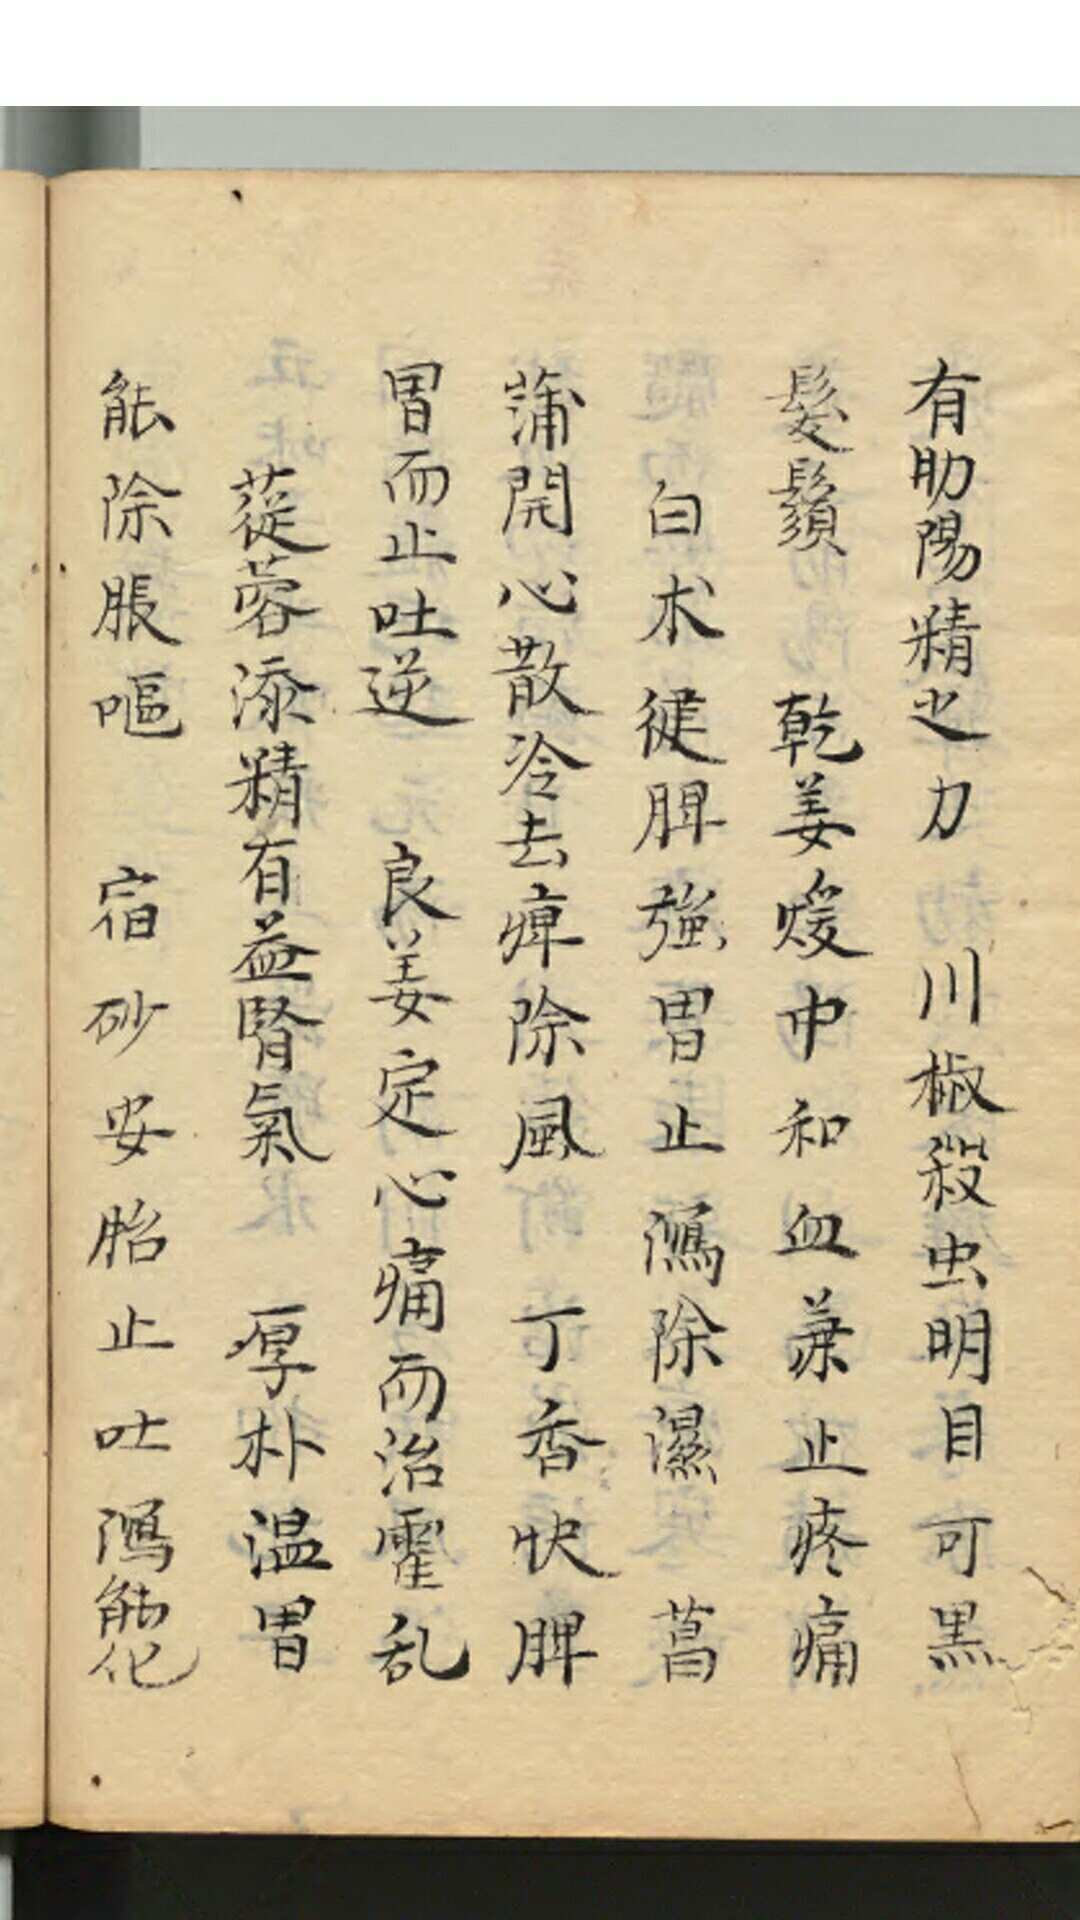 有助陽精之力　川椒殺虫明目可黑
髮鬚　乾姜煖中和血兼止疼痛
白朮健脾強胃止瀉除濕　菖
蒲開心散冷去痺除風　丁香快脾
胃而止吐逆　良姜定心痛而治霍乱
蓯蓉添精有益腎氣　厚朴温胃
能除脹嘔　宿砂安胎止吐瀉能化